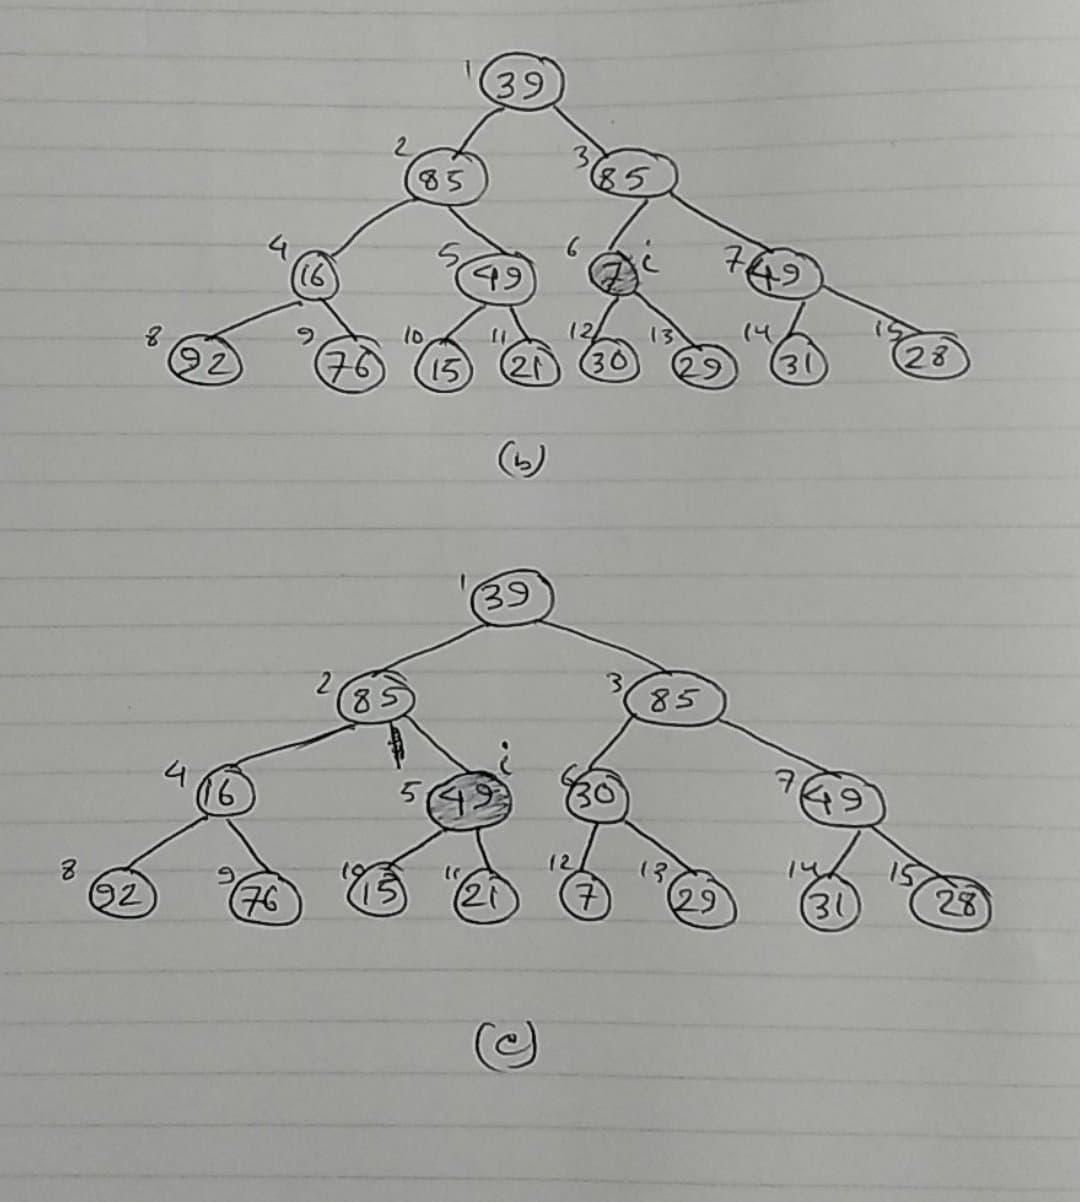 1 39
2 85 3 85
4 16 5 49 6 7 i 7 49
8 92 9 76 10 15 11 21 12 30 13 29 14 31 15 28
(b)
1 39
2 85 3 85
4 16 5 49 i 6 30 7 49
8 92 9 76 10 15 11 21 12 7 13 29 14 31 15 28
(c)